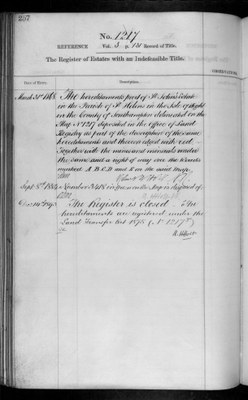 237
No. 1217
REFERENCE Vol. 3 p. 151 Record of Title.
The Register of Estates with an Indefeasible Title.
Date of Entry.
Description.
March 31st 1868. The hereditaments part of St Helens Estate
in the Parish of St Helens in the Isle of Wight
in the County of Southampton delineated on the
Map No 1217 deposited in the Office of Land
Registry as part of the description of the same
hereditaments and thereon edged with red
Together with the mines and minerals under
the same and a right of way over the Roads
marked A B C D and E on the said Map.
Sept. 8th 1884
The Register is closed. The
hereditaments are registered under the
Land Transfer Act 1875